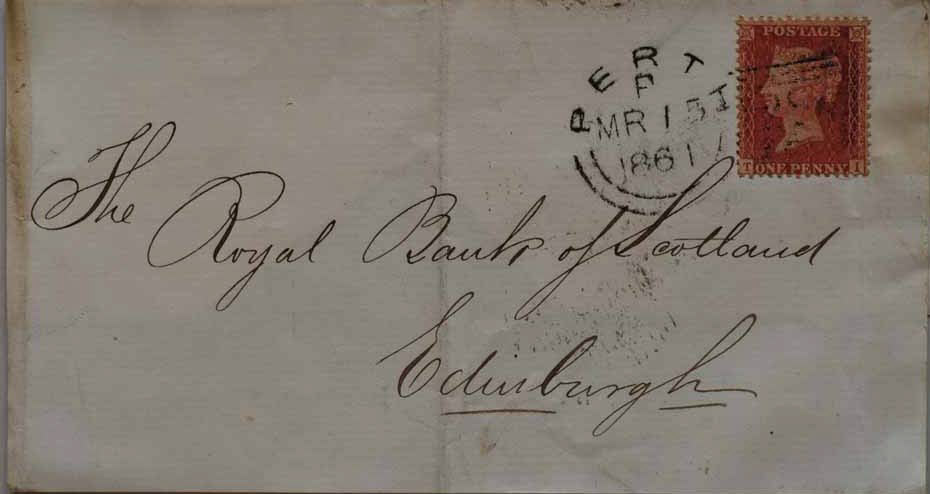 POSTAGE
T ONE PENNY I
PERT
P
MR 15
1861
The
Royal Bank of Scotland
Edinburgh